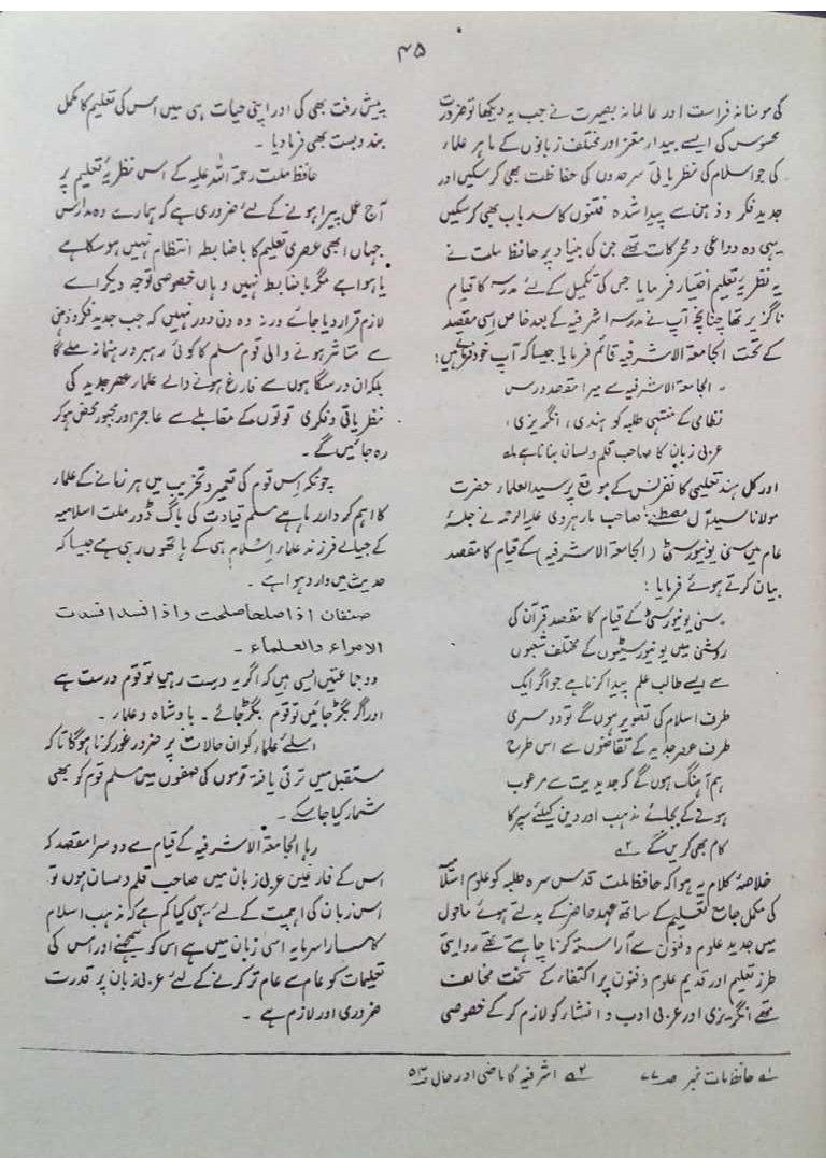 ۴۵
کی مومنانہ فراست اور عالمانہ بصیرت نے جب یہ دیکھا تو ضرورت
محسوس کی ایسے بیدار مغز اور مختلف زبانوں کے ماہر علماء
کی جو اسلام کی نظریاتی سرحدوں کی حفاظت بھی کرسکیں اور
جدید فکر و ذہن سے پیدا شدہ فتنوں کا سد باب بھی کرسکیں
یہی وہ دواعی و محرکات تھے جن کی بنیاد پر حافظ ملت نے
یہ نظریۂ تعلیم اختیار فرمایا جس کی تکمیل کے لئے مدرسہ کا قیام
ناگزیر تھا چنانچہ آپ نے مدرسہ اشرفیہ کے بعد خاص اسی مقصد
کے تحت الجامعۃ الاشرفیہ قائم فرمایا جیسا کہ آپ خود فرماتے ہیں؛
۔ الجامعۃ الاشرفیہ سے میرا مقصد درس
نظامی کے منتہی طلبہ کو ہندی، انگریزی،
عربی زبان کا صاحب قلم و لسان بنانا ہے ۱؎
اور کل ہند تعلیمی کانفرنس کے موقع پر سید العلماء حضرت
مولانا سید آل مصطفےٰ صاحب مارہروی علیہ الرحمہ نے جلسۂ
عام میں سنی یونیورسٹی (الجامعۃ الاشرفیہ) کے قیام کا مقصد
بیان کرتے ہوئے فرمایا؛
سنی یونیورسٹی کے قیام کا مقصد قرآن کی
روشنی میں یونیورسٹیوں کے مختلف شعبوں
سے ایسے طالب علم پیدا کرنا ہے جو اگر ایک
طرف اسلام کی تصویر ہوں گے تو دوسری
طرف عصر جدید کے تقاضوں سے اس طرح
ہم آہنگ ہوں گے کہ جدیدیت سے مرعوب
ہونے کے بجائے مذہب اور دین کیلئے سپر کا
کام بھی کریں گے ۲؎
خلاصۂ کلام یہ ہوا کہ حافظ ملت قدس سرہ طلبہ کو علوم اسلامیہ
کی مکمل جامع تعلیم کے ساتھ عہد حاضر کے بدلتے ہوئے ماحول
میں جدید علوم و فنون سے آراستہ کرنا چاہتے تھے روایتی
طرز تعلیم اور قدیم علوم و فنون پر اکتفاء کے سخت مخالف
تھے انگریزی اور عربی ادب و انشار کو لازم کرکے خصوصی
پیش رفت بھی کی اور اپنی حیات ہی میں اس کی تعلیم کا مکمل
بندوبست بھی فرمادیا ۔
حافظ ملت رحمۃ اللہ علیہ کے اس نظریۂ تعلیم پر
آج عمل پیرا ہونے کے لئے ضروری ہے کہ ہمارے وہ مدارس
جہاں ابھی عصری تعلیم کا باضابطہ انتظام نہیں ہوسکا ہے
یا ہوا ہے مگر باضابطہ نہیں وہاں خصوصی توجہ دیکر اسے
لازم قرار دیا جائے ورنہ وہ دن دور نہیں کہ جب جدید فکر و ذہن
سے متاثر ہونے والی قوم مسلم کا کوئی رہبر و رہنما نہ ملے گا
بلکہ ان درسگاہوں سے فارغ ہونے والے علماء عصر جدید کی
نظریاتی و فکری قوتوں کے مقابلے سے عاجز اور مجبور محض ہوکر
رہ جائیں گے ۔
چونکہ اس قوم کی تعمیر و تخریب میں ہر زمانے کے علماء
کا اہم کردار رہا ہے مسلم قیادت کی باگ ڈور ملت اسلامیہ
کے جیالے فرزند علماء اسلام ہی کے ہاتھوں رہی ہے جیسا کہ
حدیث میں وارد ہوا ہے ۔
صنفان اذا صلحا صلحت واذا فسدا فسدت
الامراء والعلماء ۔
دو جماعتیں ایسی ہیں کہ اگر یہ درست رہیں تو قوم درست ہے
اور اگر بگڑ جائیں تو قوم بگڑ جائے ۔ بادشاہ و علماء ۔
اسلئے علماء کو ان حالات پر ضرور غور کرنا ہوگا تاکہ
مستقبل میں ترقی یافتہ قوموں کی صفوں میں مسلم قوم کو بھی
شمار کیا جاسکے ۔
رہا الجامعۃ الاشرفیہ کے قیام سے دوسرا مقصد کہ
اس کے فارغین عربی زبان میں صاحب قلم و لسان ہوں تو
اس زبان کی اہمیت کے لئے یہی کیا کم ہے کہ مذہب اسلام
کا سارا سرمایہ اسی زبان میں ہے اس کو سمجھنے اور اس کی
تعلیمات کو عام سے عام تر کرنے کے لئے عربی زبان پر قدرت
ضروری اور لازم ہے ۔
۱؎ حافظ ملت نمبر صـ ۷۷ ۲؎ اشرفیہ کا ماضی اور حال صـ ۵۳